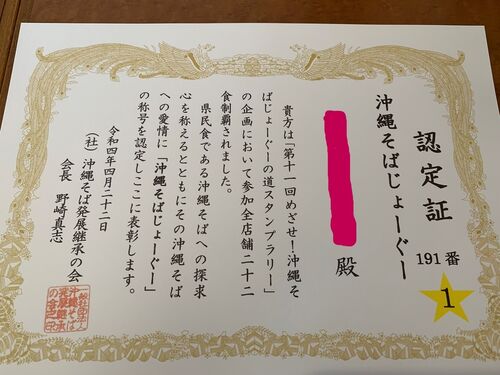 認定証
191番
1
沖縄そばじょーぐー
殿
貴方は「第十一回めざせ!沖縄そ
ばじょーぐーの道スタンプラリー」
の企画において参加全店舗二十二
食制覇されました。
県民食である沖縄そばへの探求
心を称えるとともにその沖縄そば
への愛情に「沖縄そばじょーぐー」
の称号を認定しここに表彰します。
令和四年四月二十二日
(社)沖縄そば発展継承の会
会長 野崎真志
一般社団法人
沖縄そば
発展継承
の会之印